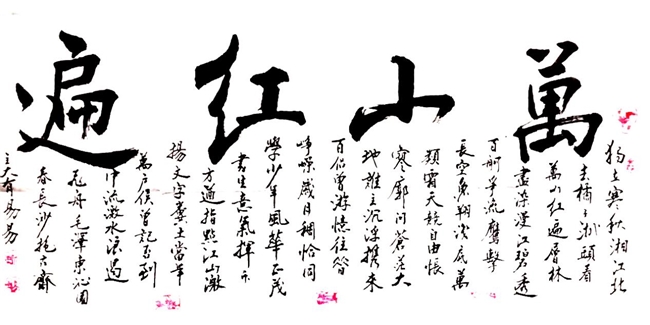 萬山红遍
独立寒秋湘江北
去橘子洲頭看
萬山红遍層林
盡染漫江碧透
百舸争流鷹擊
長空魚翔浅底萬
類霜天競自由悵
寥廓问蒼茫大
地誰主沉浮携来
百侣曾游憶往昔
崢嶸歲月稠恰同
學少年風華正茂
書生意氣揮斥
方遒指點江山激
揚文字糞土當年
萬户侯曾記否到
中流激水浪遏
飛舟毛澤東沁園
春長沙